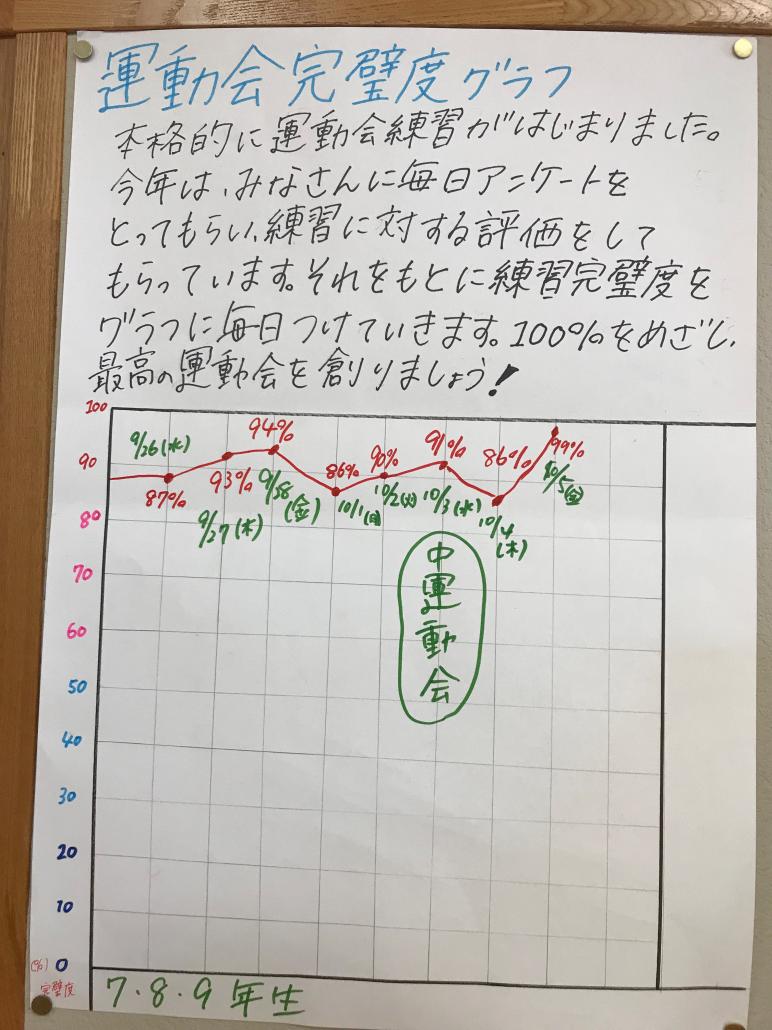 運動会完璧度グラフ
本格的に運動会練習がはじまりました。
今年は、みなさんに毎日アンケートを
とってもらい、練習に対する評価をして
もらっています。それをもとに練習完璧度を
グラフに毎日つけていきます。100%をめざし、
最高の運動会を創りましょう!
100
90
80
70
60
50
40
30
20
10
0
(%)
完璧度
9/26(水)
87%
93%
9/27(木)
94%
9/28(金)
86%
10/1(月)
90%
10/2(火)
91%
10/3(水)
86%
10/4(木)
99%
10/5(金)
中運動会
7・8・9年生